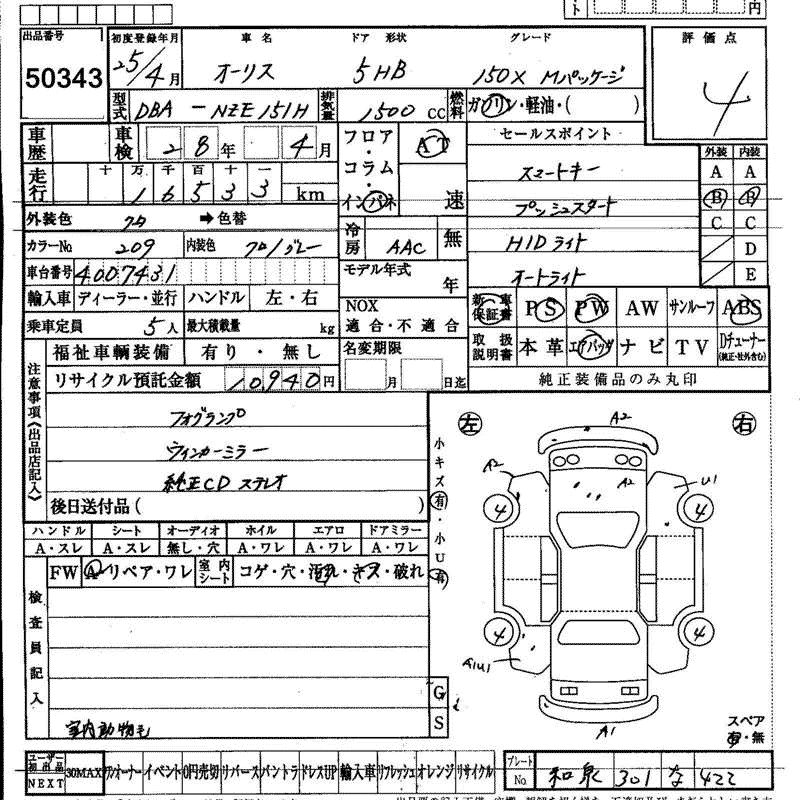 円
出品番号 初度登録年月 車名 ドア 形状 グレード 評価点
50343 25/4月 オーリス 5HB 150X Mパッケージ 4
型式 DBA-NZE151H 排気量 1500cc 燃料 ガソリン・軽油・( )
車歴 車検 28年 4月 フロア・コラム・インパネ AT 速 セールスポイント 外装 内装
走行 十 万 千 百 十 一 スマートキー A A
16533 km プッシュスタート B B
外装色 クロ ➡色替 冷房 AAC 無 HIDライト C C
カラーNo 209 内装色 クロ/グレー オートライト D
車台番号 4007431 モデル年式 年 E
輸入車 ディーラー・並行 ハンドル 左・右 NOX 適合・不適合 新車保証書 PS PW AW サンルーフ ABS
乗車定員 5人 最大積載量 kg 取扱説明書 本革 エアバッグ ナビ TV Dチューナー(純正・社外含む)
福祉車輌装備 有り・無し 名変期限 月 日迄 純正装備品のみ丸印
リサイクル預託金額 10940円
注意事項《出品店記入》
フォグランプ
ウィンカーミラー
純正CDステレオ
後日送付品( )
小キズ有・小U有
左 右
A2
A2 A2 U1
4 4
4 4
A1U1
A1
ハンドル シート オーディオ ホイル エアロ ドアミラー
A・スレ A・スレ 無し・穴 A・ワレ A・ワレ A・ワレ
FW A・リペア・ワレ 室内シート コゲ・穴・汚れ・キズ・破れ
検査員記入
室内動物毛
G
S
スペア
有・無
ユーザー初出品 NEXT 30MAX ワンオーナー イベント 0円売切 リバース バントラ ドレスUP 輸入車 リフレッシュ オレンジ リサイクル
プレートNo. 和泉 301 な 422